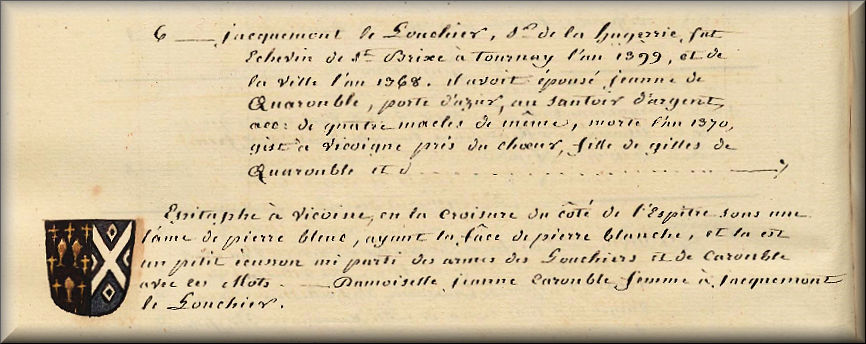 6 — jacquemont le Louchier, Sr. de la hugerrie, fut
Echevin de St. Brixe à tournay l'an 1399, et de
la ville l'an 1368. il avoit épousé jeanne de
Quarouble, porte d'azur, au santoir d'argent,
acc: de quatre macles de même, morte l'an 1370,
gist à vicoigne prés du chœur, fille de gilles de
Quarouble et d . . . . . . . . . . . . . . —
Epitaphe à vicoine, en la croisure du côté de l'Espitre sous une
lame de pierre bleue, ayant la fâce de pierre blanche, et la est
un pitit ecusson mi parti des armes des Louchiers et de Carouble
avec ces Mots. — Damoiselle jeanne Carouble femme à jacquemont
le Louchier.